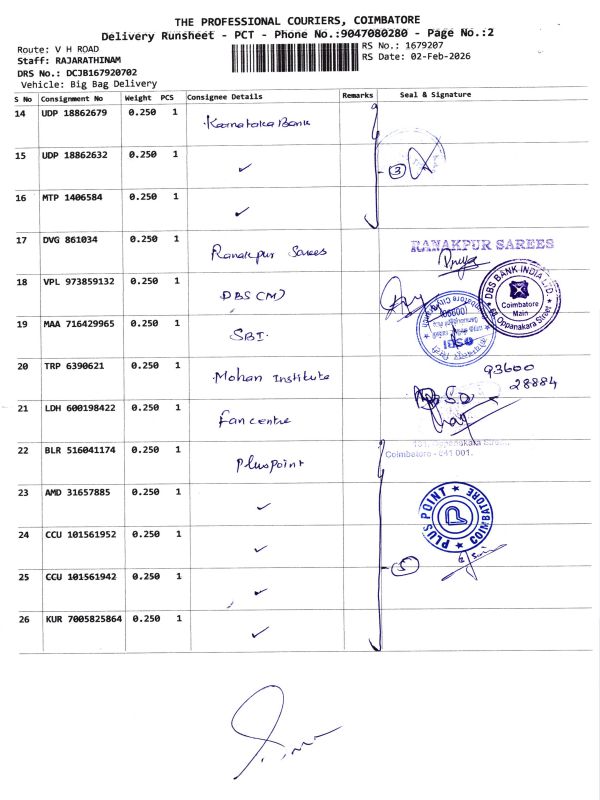 THE PROFESSIONAL COURIERS, COIMBATORE
Delivery Runsheet - PCT - Phone No.:9047080280 - Page No.:2
Route: V H ROAD
RS No.: 1679207
Staff: RAJARATHINAM
RS Date: 02-Feb-2026
DRS No.: DCJB167920702
Vehicle: Big Bag Delivery
S No Consignment No Weight PCS Consignee Details Remarks Seal & Signature
14 UDP 18862679 0.250 1 Karnataka Bank
15 UDP 18862632 0.250 1 ✓
3
16 MTP 1406584 0.250 1 ✓
17 DVG 861034 0.250 1 Ranakpur Sarees
RANAKPUR SAREES
18 VPL 973859132 0.250 1 DBS (M)
DBS BANK INDIA LTD.
Coimbatore
Main
Oppanakara Street
19 MAA 716429965 0.250 1 SBI
20 TRP 6390621 0.250 1 Mohan Institute
93600
28884
21 LDH 600198422 0.250 1 fan centre
22 BLR 516041174 0.250 1 Pluspoint
Coimbatore - 641 001.
23 AMD 31657885 0.250 1 ✓
PLUS POINT ★ COIMBATORE ★
24 CCU 101561952 0.250 1 ✓
25 CCU 101561942 0.250 1 ✓
5
26 KUR 7005825864 0.250 1 ✓